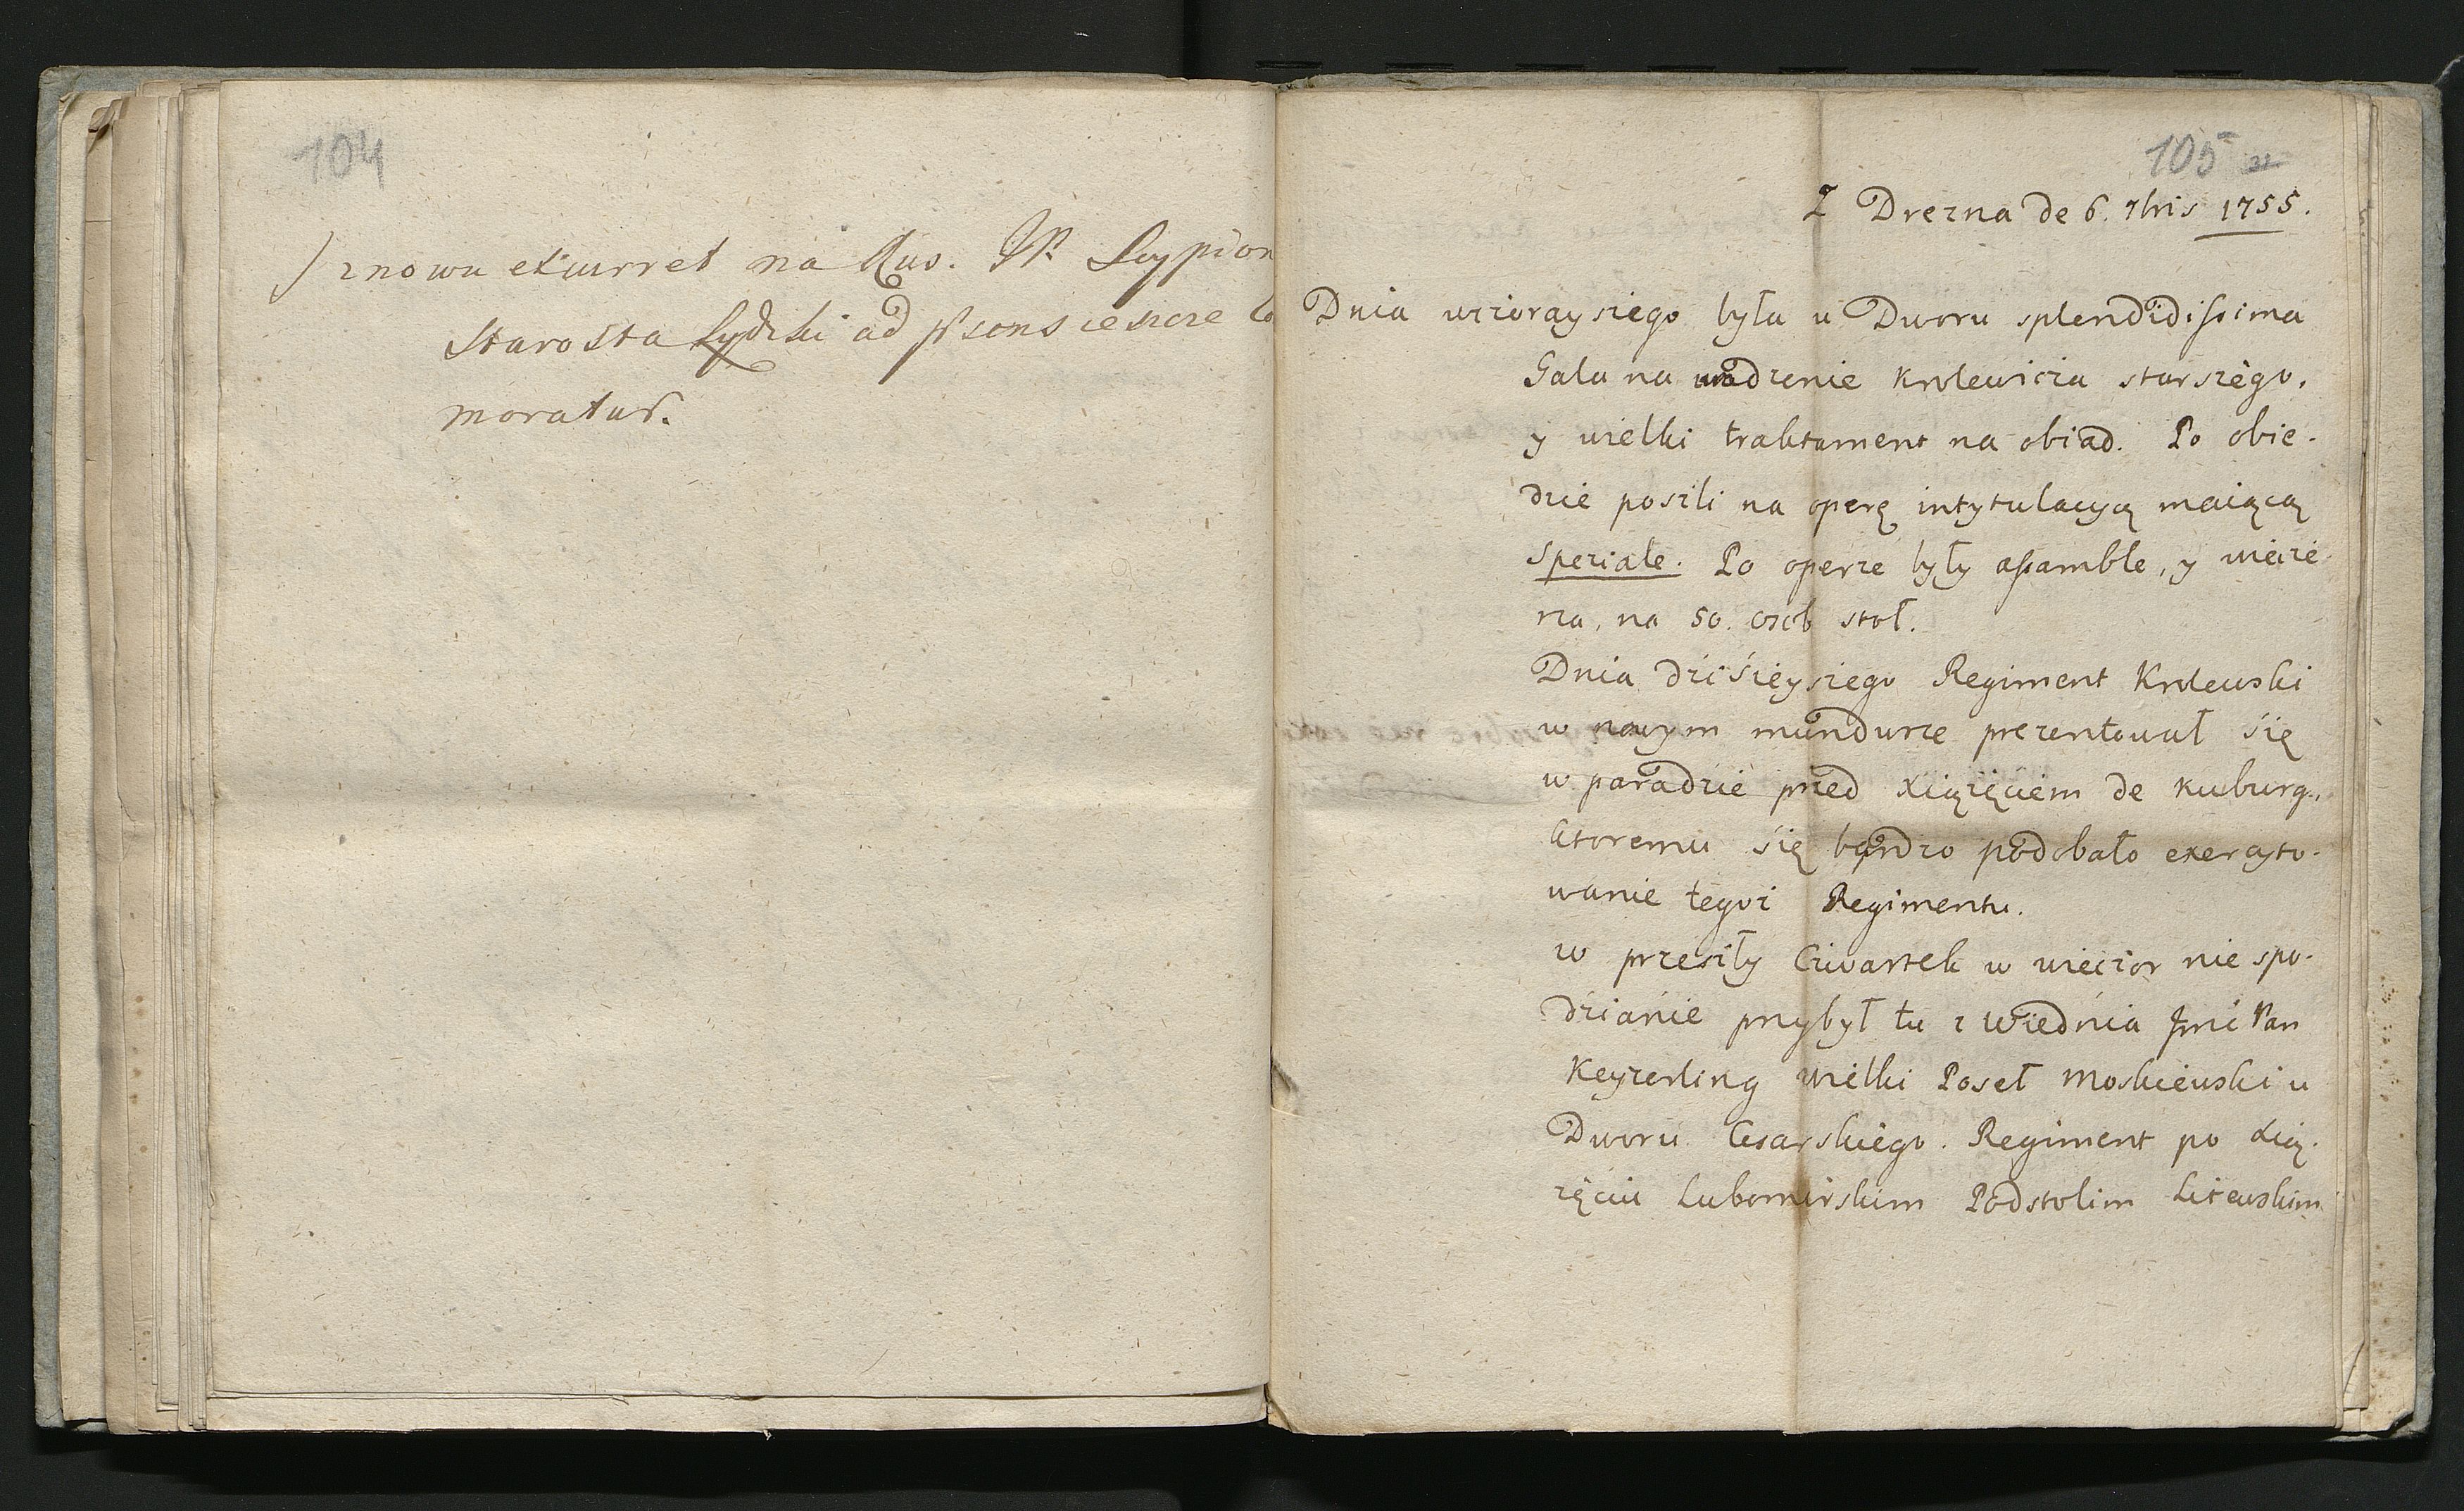 104
znowu excurret na Rus. JP. Scypion
Starosta Lydzki ad psens ieszcze
moratur.
105
Z Drezna de 6. 7bris 1755.
Dnia wczorayszego była u Dworu splendidissima
Gala na urodzenie Krolewicza starszego,
y wielki traktament na obiad. Po obie-
dzie poszli na operę intytulacyą maiącą
Speziale. Po operze były assamble, y wiecze
rza, na 50. osob stoł.
Dnia dzisieyszego Regiment Krolewski
w nowym mundurze prezentował się
w paradzie przed Xiążęciem de
ktoremu się bardzo podobało exercyto-
wanie tegoż Regimentu.
w przeszły Czwartek w wieczor nie spo-
dzianie przybył tu z Wiednia Jmć Pan
Keyzerling wielki Poseł Moskiewski u
Dworu Cesarskiego. Regiment po Xią-
żęciu Lubomirskim Podstolim Litewskim